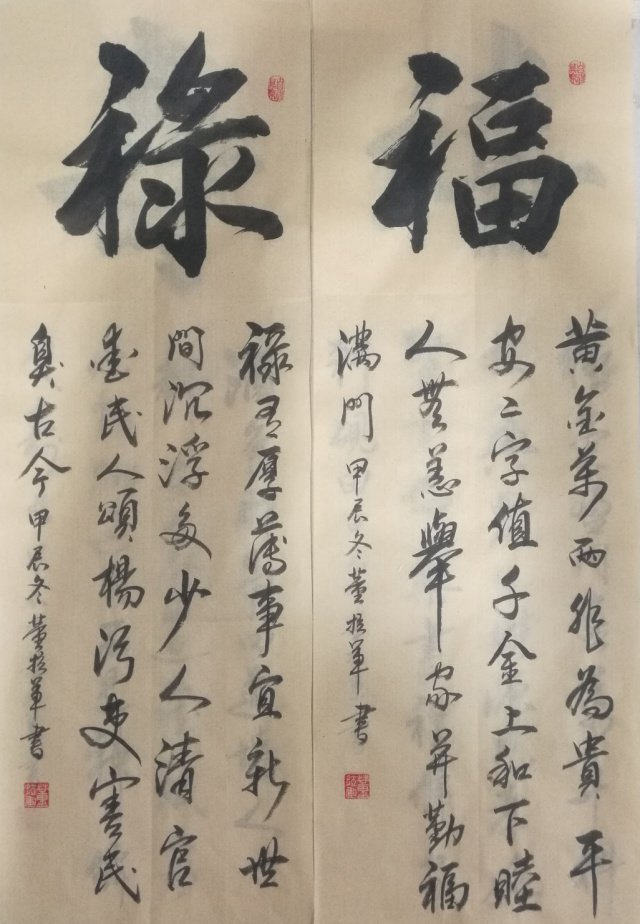 福
黄金萬两非為貴平
安二字值千金上和下睦
人無恙舉家并勤福
滿門 甲辰冬董振軍書
禄
禄有厚薄事宜新世
間沉浮多少人清官
愛民人頌楊污吏害民
臭古今 甲辰冬董振軍書